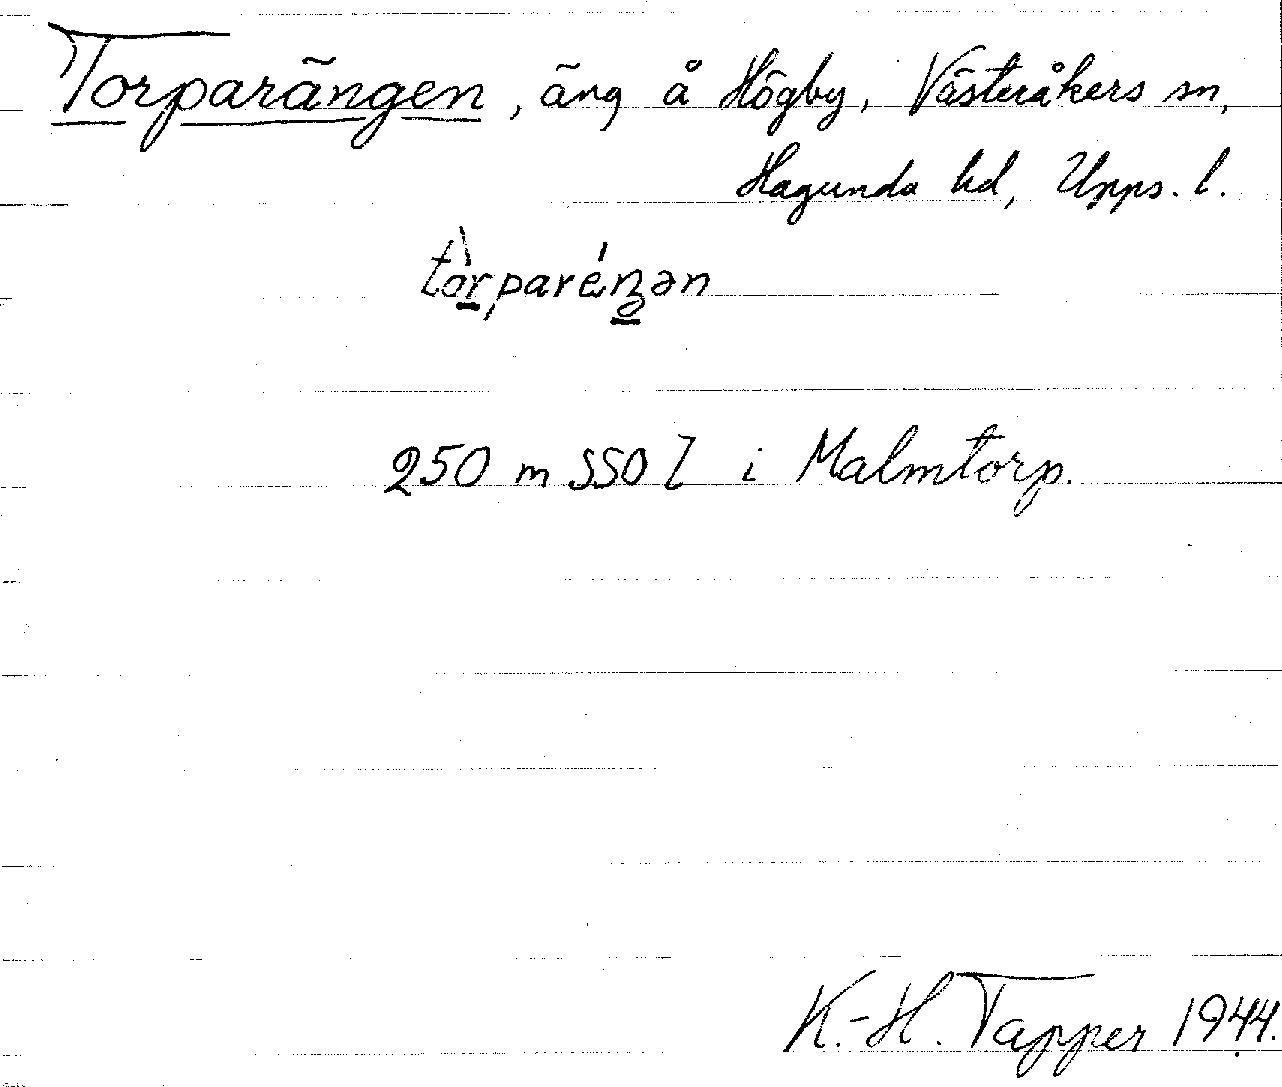 Torparängen, äng å Högby, Västeråkers sn,
Hagunda hd, Upps. l.
tòrparéŋən
250 m SSO l i Malmtorp.
K.-H. Tapper 1944.